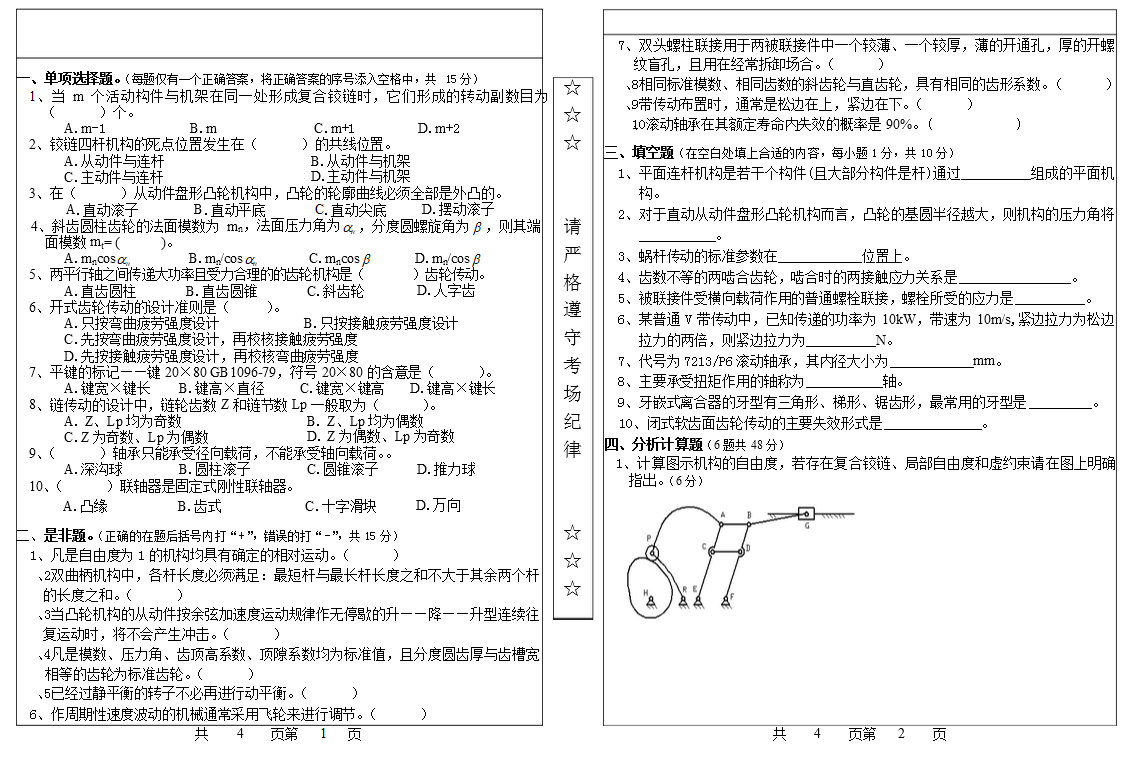 一、单项选择题。(每题仅有一个正确答案，将正确答案的序号添入空格中，共 15分)
1、当 m 个活动构件与机架在同一处形成复合铰链时，它们形成的转动副数目为
( )个。
A. m-1 B. m C. m+1 D. m+2
2、铰链四杆机构的死点位置发生在( )的共线位置。
A.从动件与连杆 B.从动件与机架
C.主动件与连杆 D.主动件与机架
3、在( )从动件盘形凸轮机构中，凸轮的轮廓曲线必须全部是外凸的。
A.直动滚子 B.直动平底 C.直动尖底 D.摆动滚子
4、斜齿圆柱齿轮的法面模数为 mn，法面压力角为αn，分度圆螺旋角为β，则其端
面模数 mt= ( )。
A. mncosαn B. mn/cosαn C. mncosβ D. mn/cosβ
5、两平行轴之间传递大功率且受力合理的的齿轮机构是( )齿轮传动。
A.直齿圆柱 B.直齿圆锥 C.斜齿轮 D.人字齿
6、开式齿轮传动的设计准则是( )。
A.只按弯曲疲劳强度设计 B.只按接触疲劳强度设计
C.先按弯曲疲劳强度设计，再校核接触疲劳强度
D.先按接触疲劳强度设计，再校核弯曲疲劳强度
7、平键的标记——键 20×80 GB 1096-79，符号 20×80 的含意是( )。
A.键宽×键长 B.键高×直径 C.键宽×键高 D.键高×键长
8、链传动的设计中，链轮齿数 Z 和链节数 Lp 一般取为( )。
A. Z、Lp 均为奇数 B. Z、Lp 均为偶数
C. Z 为奇数、Lp 为偶数 D. Z 为偶数、Lp 为奇数
9、( )轴承只能承受径向载荷，不能承受轴向载荷。。
A.深沟球 B.圆柱滚子 C.圆锥滚子 D.推力球
10、( )联轴器是固定式刚性联轴器。
A.凸缘 B.齿式 C.十字滑块 D.万向
二、是非题。(正确的在题后括号内打“+”，错误的打“-”，共 15 分)
1、凡是自由度为 1 的机构均具有确定的相对运动。( )
、2双曲柄机构中，各杆长度必须满足：最短杆与最长杆长度之和不大于其余两个杆
的长度之和。( )
、3当凸轮机构的从动件按余弦加速度运动规律作无停歇的升——降——升型连续往
复运动时，将不会产生冲击。( )
、4凡是模数、压力角、齿顶高系数、顶隙系数均为标准值，且分度圆齿厚与齿槽宽
相等的齿轮为标准齿轮。( )
、5已经过静平衡的转子不必再进行动平衡。( )
6、作周期性速度波动的机械通常采用飞轮来进行调节。( )
共 4 页第 1 页
☆
☆
☆
请
严
格
遵
守
考
场
纪
律
☆
☆
☆
7、双头螺柱联接用于两被联接件中一个较薄、一个较厚，薄的开通孔，厚的开螺
纹盲孔，且用在经常拆卸场合。( )
、8相同标准模数、相同齿数的斜齿轮与直齿轮，具有相同的齿形系数。( )
、9带传动布置时，通常是松边在上，紧边在下。( )
10滚动轴承在其额定寿命内失效的概率是 90%。( )
三、填空题(在空白处填上合适的内容，每小题 1 分，共 10 分)
1、平面连杆机构是若干个构件(且大部分构件是杆)通过__________组成的平面机
构。
2、对于直动从动件盘形凸轮机构而言，凸轮的基圆半径越大，则机构的压力角将
___________。
3、蜗杆传动的标准参数在____________位置上。
4、齿数不等的两啮合齿轮，啮合时的两接触应力关系是________________。
5、被联接件受横向载荷作用的普通螺栓联接，螺栓所受的应力是__________。
6、某普通 V 带传动中，已知传递的功率为 10kW，带速为 10m/s,紧边拉力为松边
拉力的两倍，则紧边拉力为__________N。
7、代号为 7213/P6 滚动轴承，其内径大小为____________mm。
8、主要承受扭矩作用的轴称为___________轴。
9、牙嵌式离合器的牙型有三角形、梯形、锯齿形，最常用的牙型是_________。
10、闭式软齿面齿轮传动的主要失效形式是______________。
四、分析计算题(6题共 48分)
1、计算图示机构的自由度，若存在复合铰链、局部自由度和虚约束请在图上明确
指出。(6分)
A B
G
P
C D
H R E F
共 4 页第 2 页